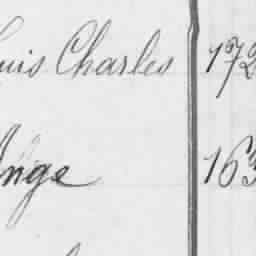 Louis Charles 172
Ange 163